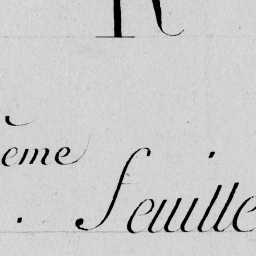 R
ème
feuille